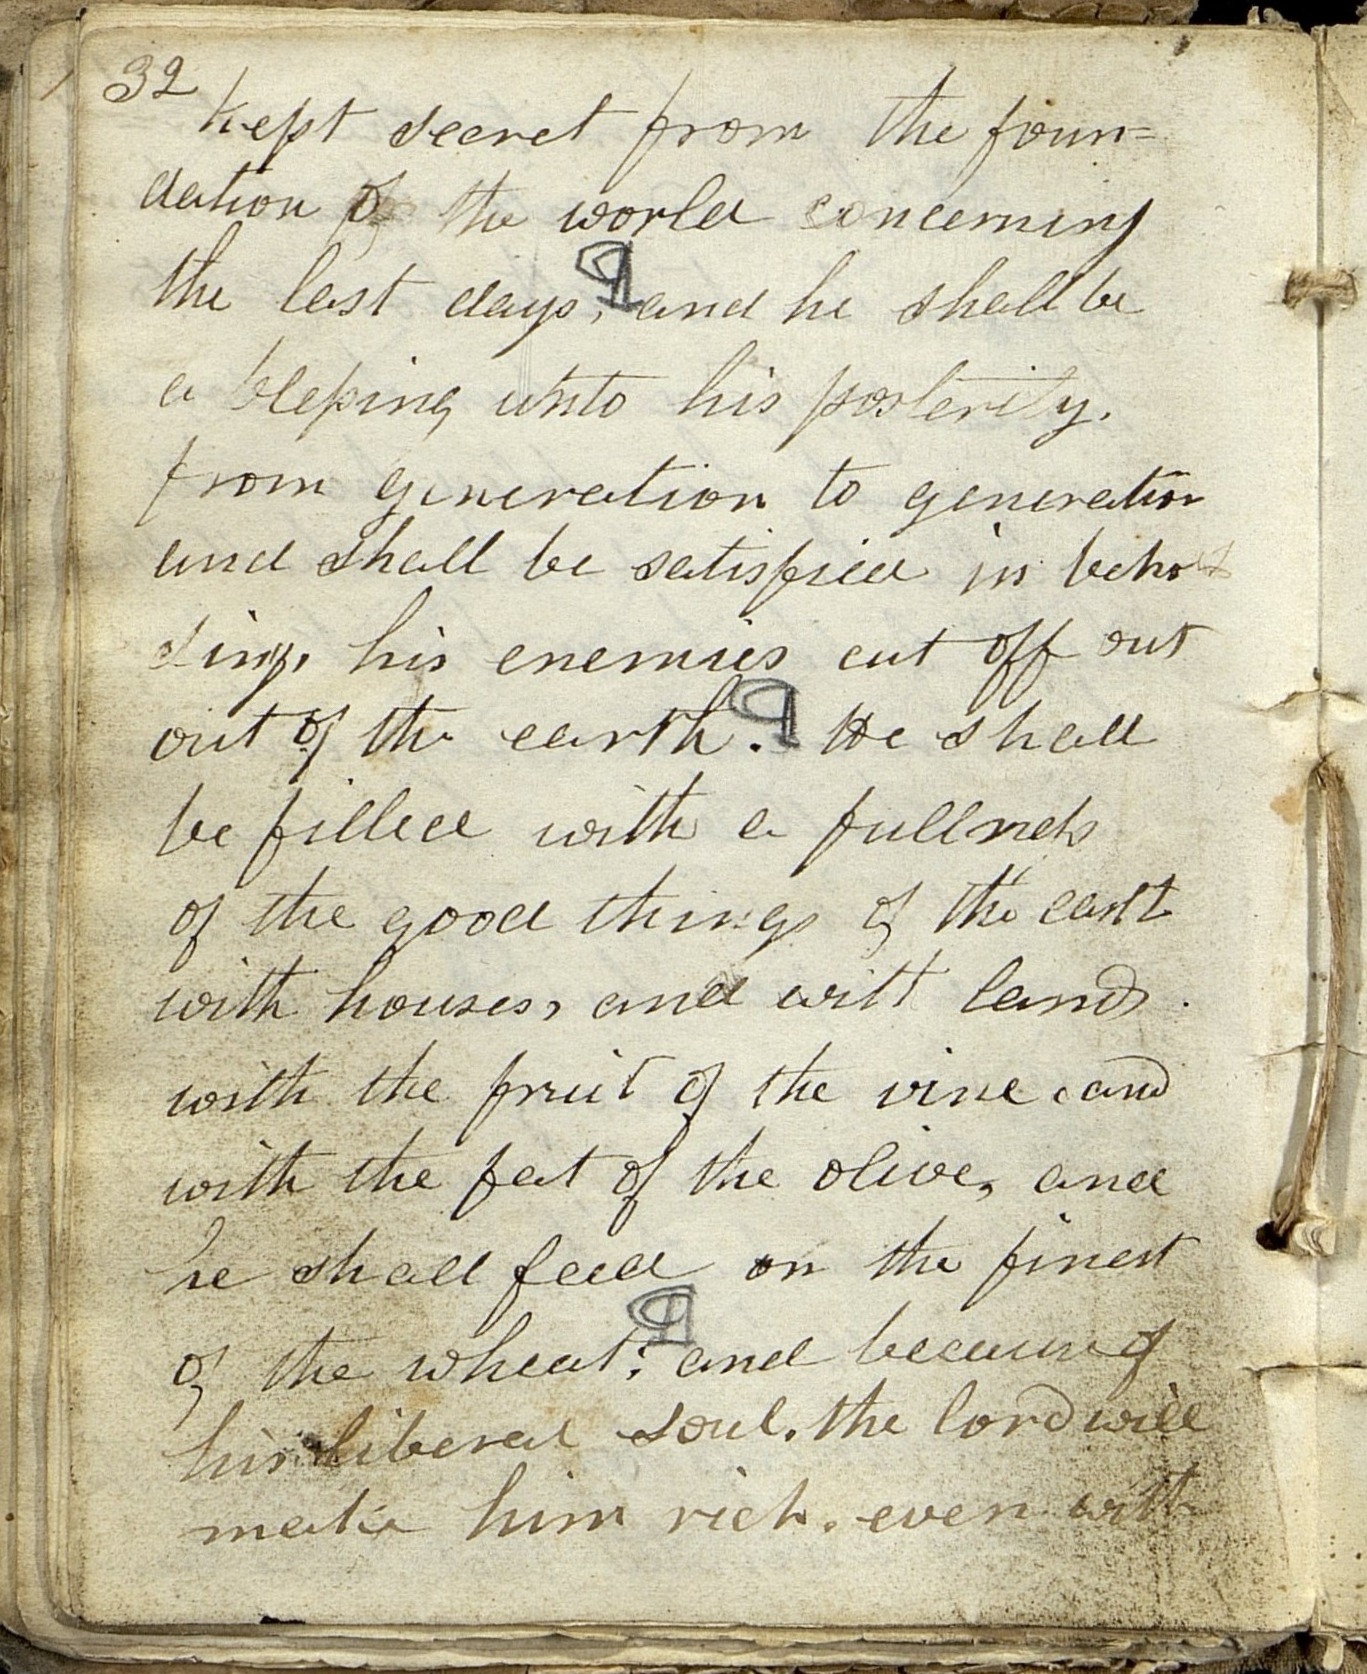 32
kept secret from the foun=
dation of the world concerning
the last days; ¶ and he shall be
a blessing unto his posterity.
from generation to generation
and shall be satisfied in behol
ding, his enemies cut off out
out of the earth. ¶ He shall
be filled with a fullness
of the good things of the earth
with houses, and with lands.
with the fruit of the vine and
with the fat of the olive, and
he shall feed on the finest
of the wheat; ¶ and because of
his liberal soul. the lord will
make him rich. even with